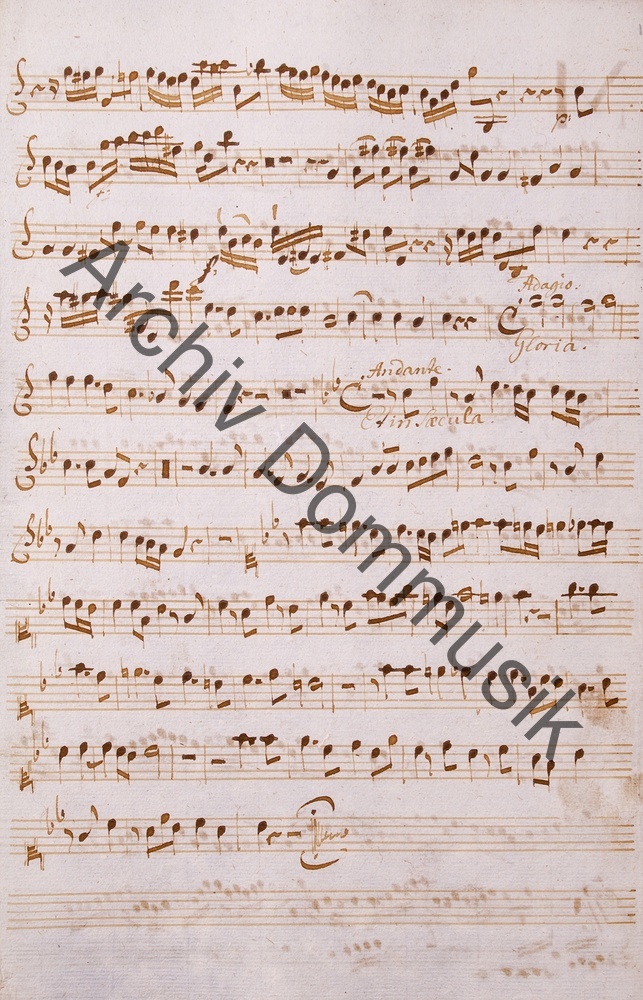 Adagio.
Gloria.
Andante.
Et in Sæcula.
Archiv Dommusik